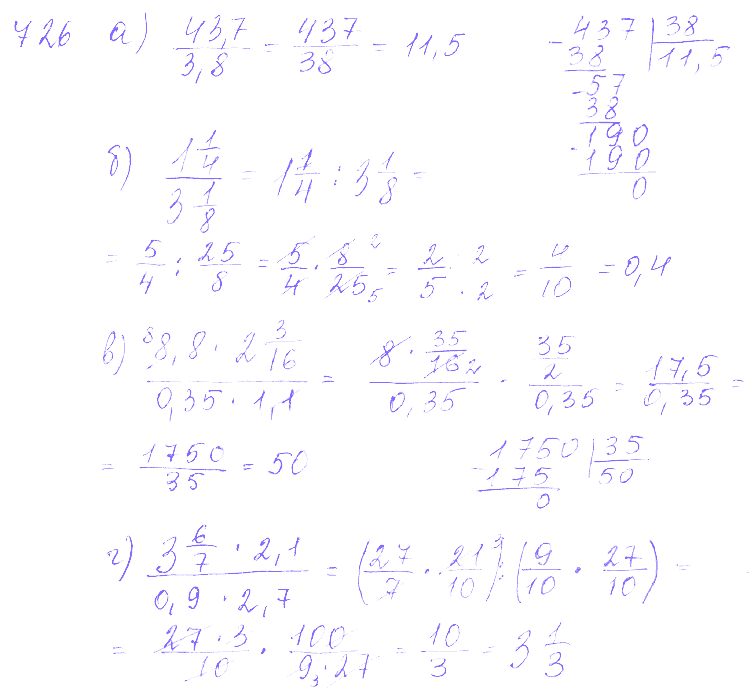 726 а) 43,7/3,8 = 437/38 = 11,5
437 | 38
38 | 11,5
- 57
38
- 190
190
0
б) 1 1/4 / 3 1/8 = 1 1/4 : 3 1/8 =
= 5/4 : 25/8 = 5/4 · 8/25 2 5 = 2/5 · 2 2 = 4/10 = 0,4
в) 8 8,8 · 2 3/16 / 0,35 · 1,1 = 8 · 35/16 2 / 0,35 = 35/2 / 0,35 = 17,5/0,35 =
= 1750/35 = 50
- 1750 | 35
175 | 50
0
г) 3 6/7 · 2,1 / 0,9 · 2,7 = (27/7 · 21/10) 3 : (9/10 · 27/10) =
= 27 · 3/10 · 100/9 3 · 27 = 10/3 = 3 1/3